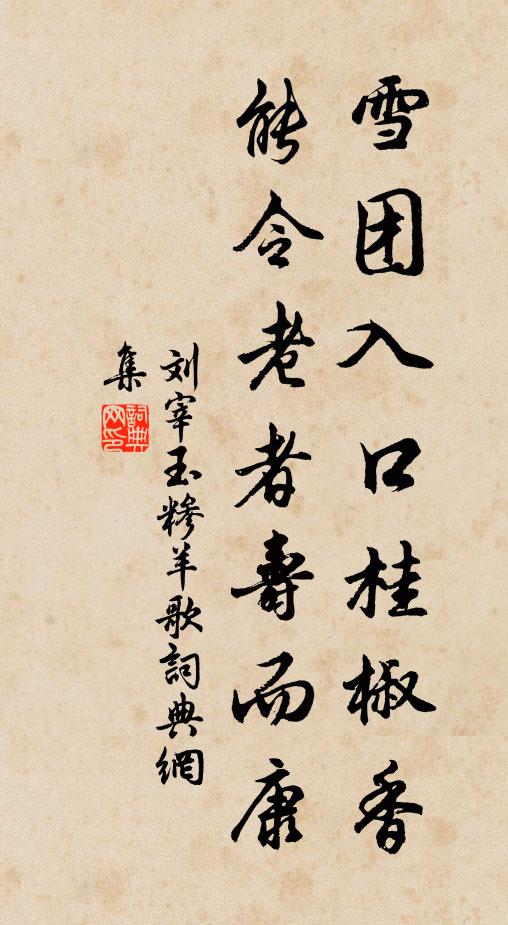 雪团入口桂椒香
能令老者壽而康
刘宰玉糝羊歌詞典網
集
詞典网印